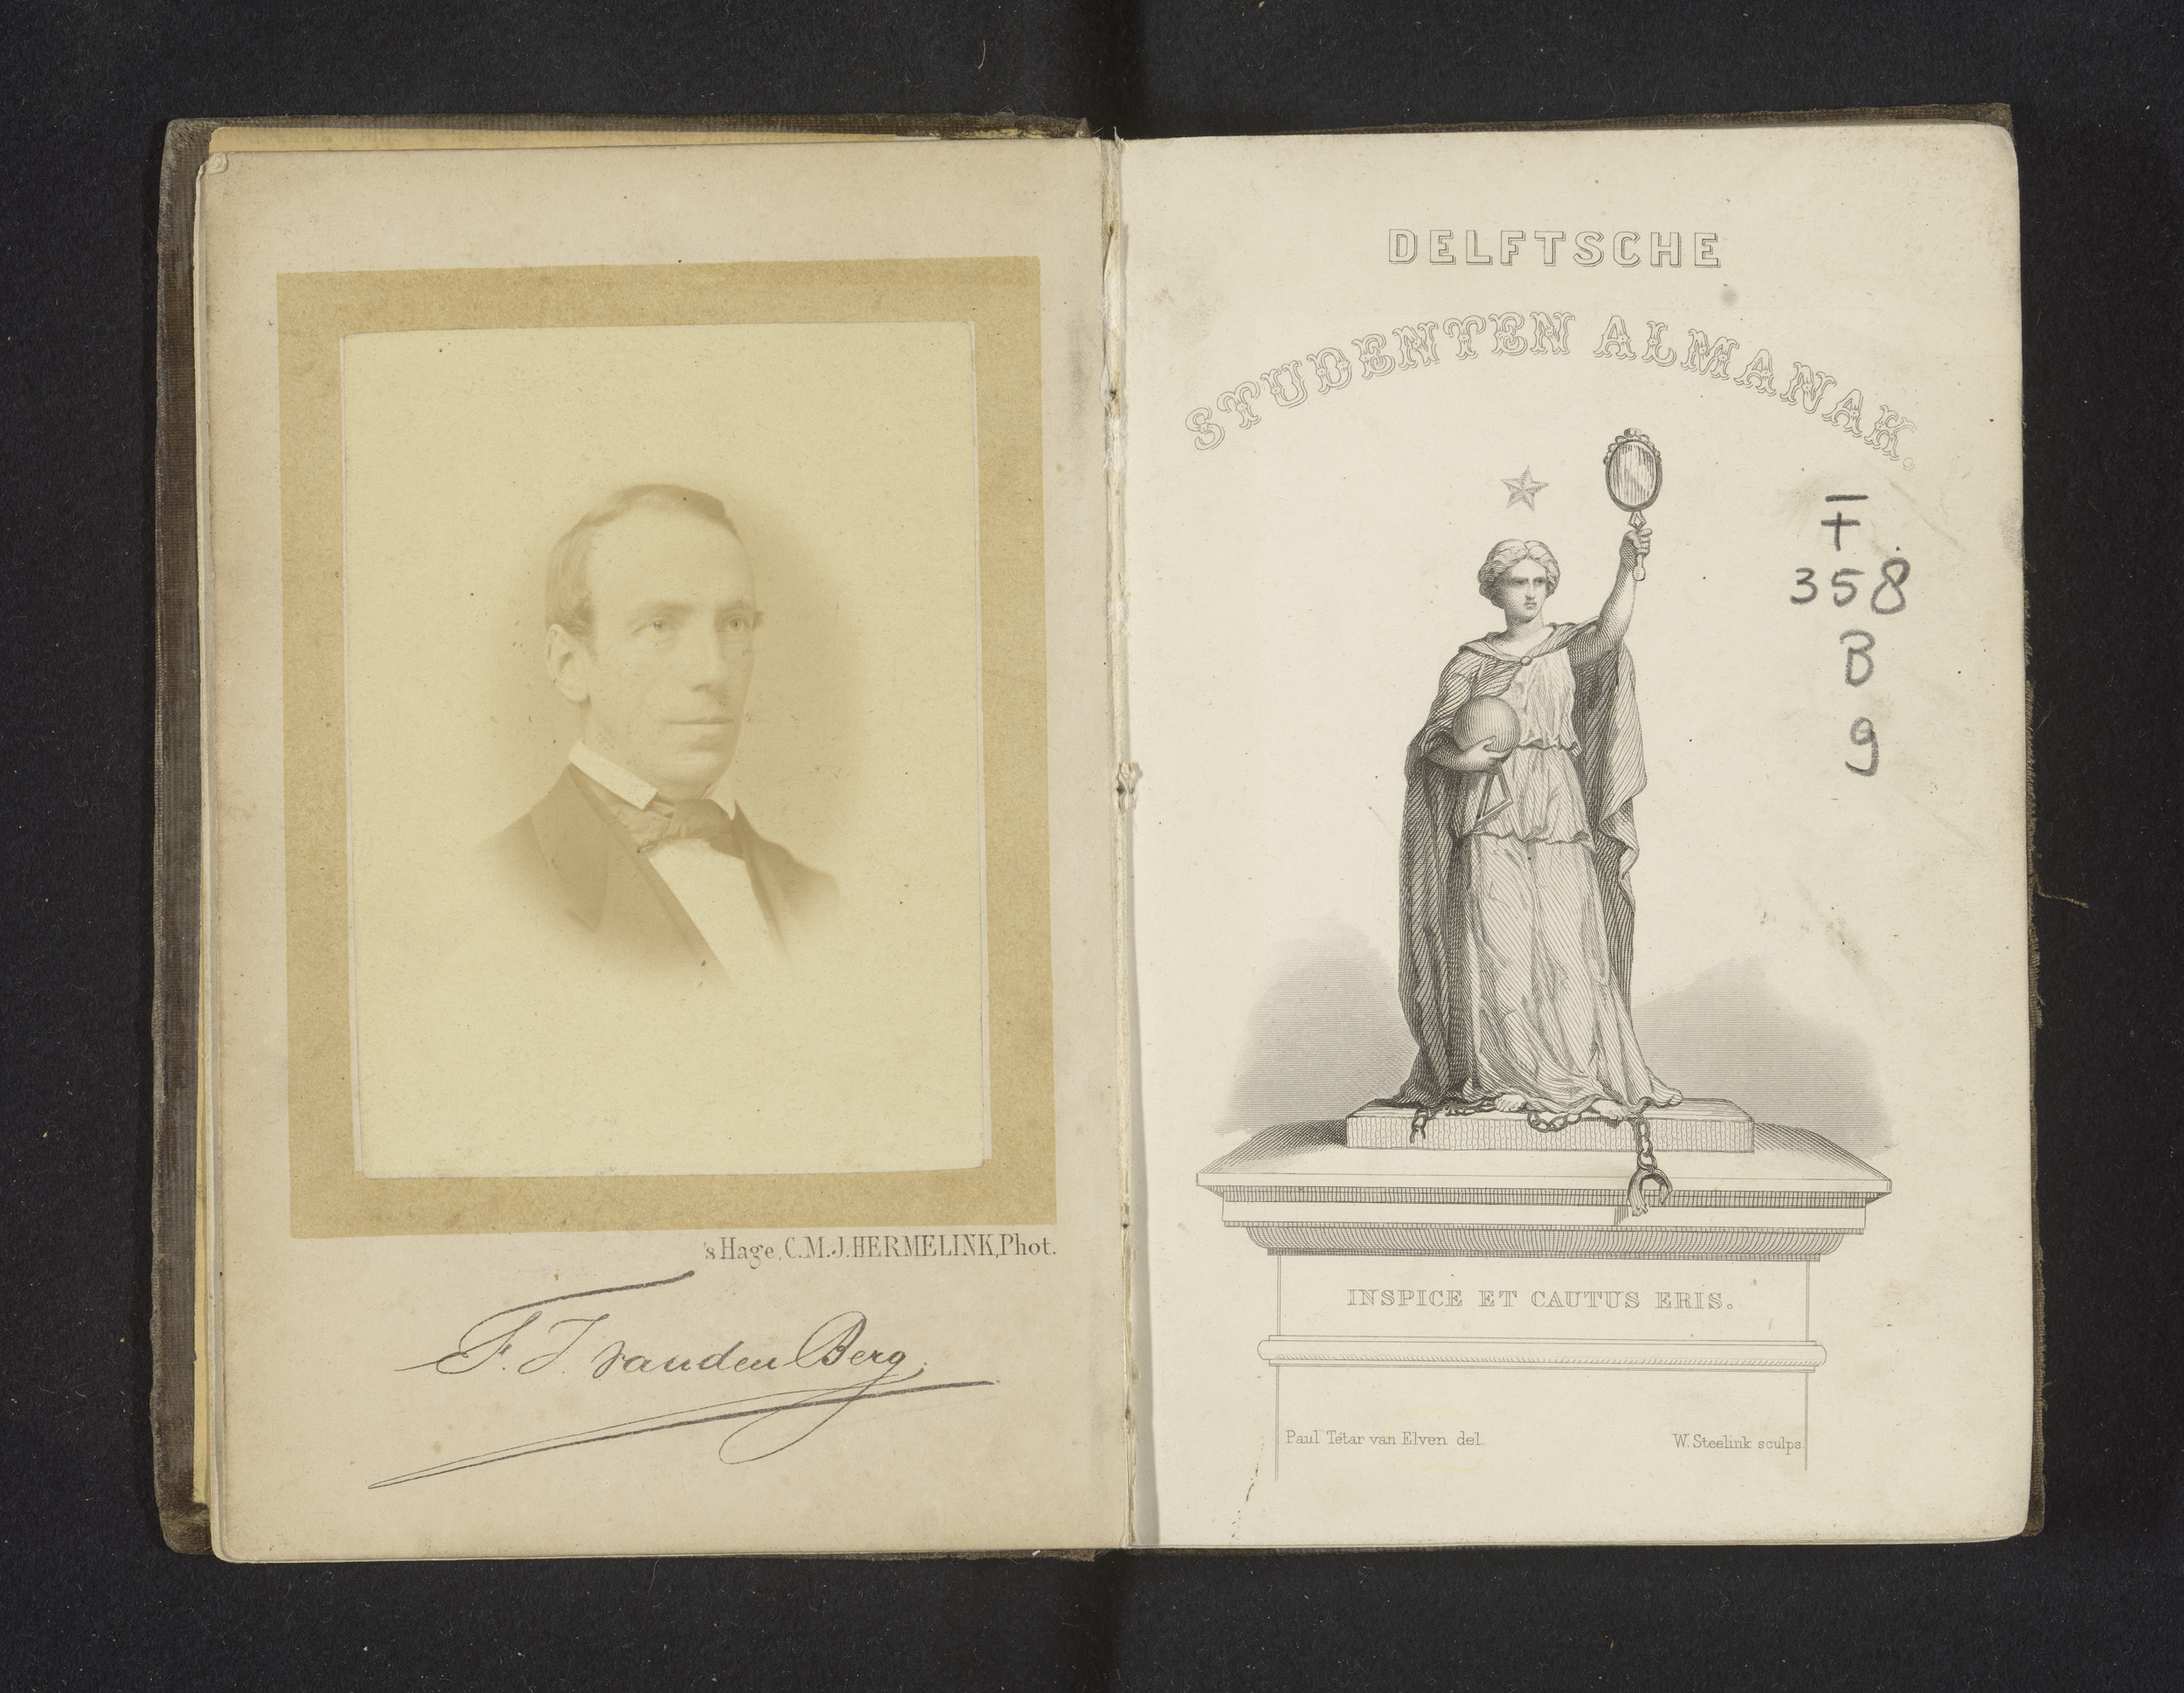 's Hage, C.M.J. HERMELINK, Phot.
F. J. van den Berg
DELFTSCHE
STUDENTEN ALMANAK.
358
B
9
INSPICE ET CAUTUS ERIS.
Paul Tétar van Elven del.
W. Steelink sculps.